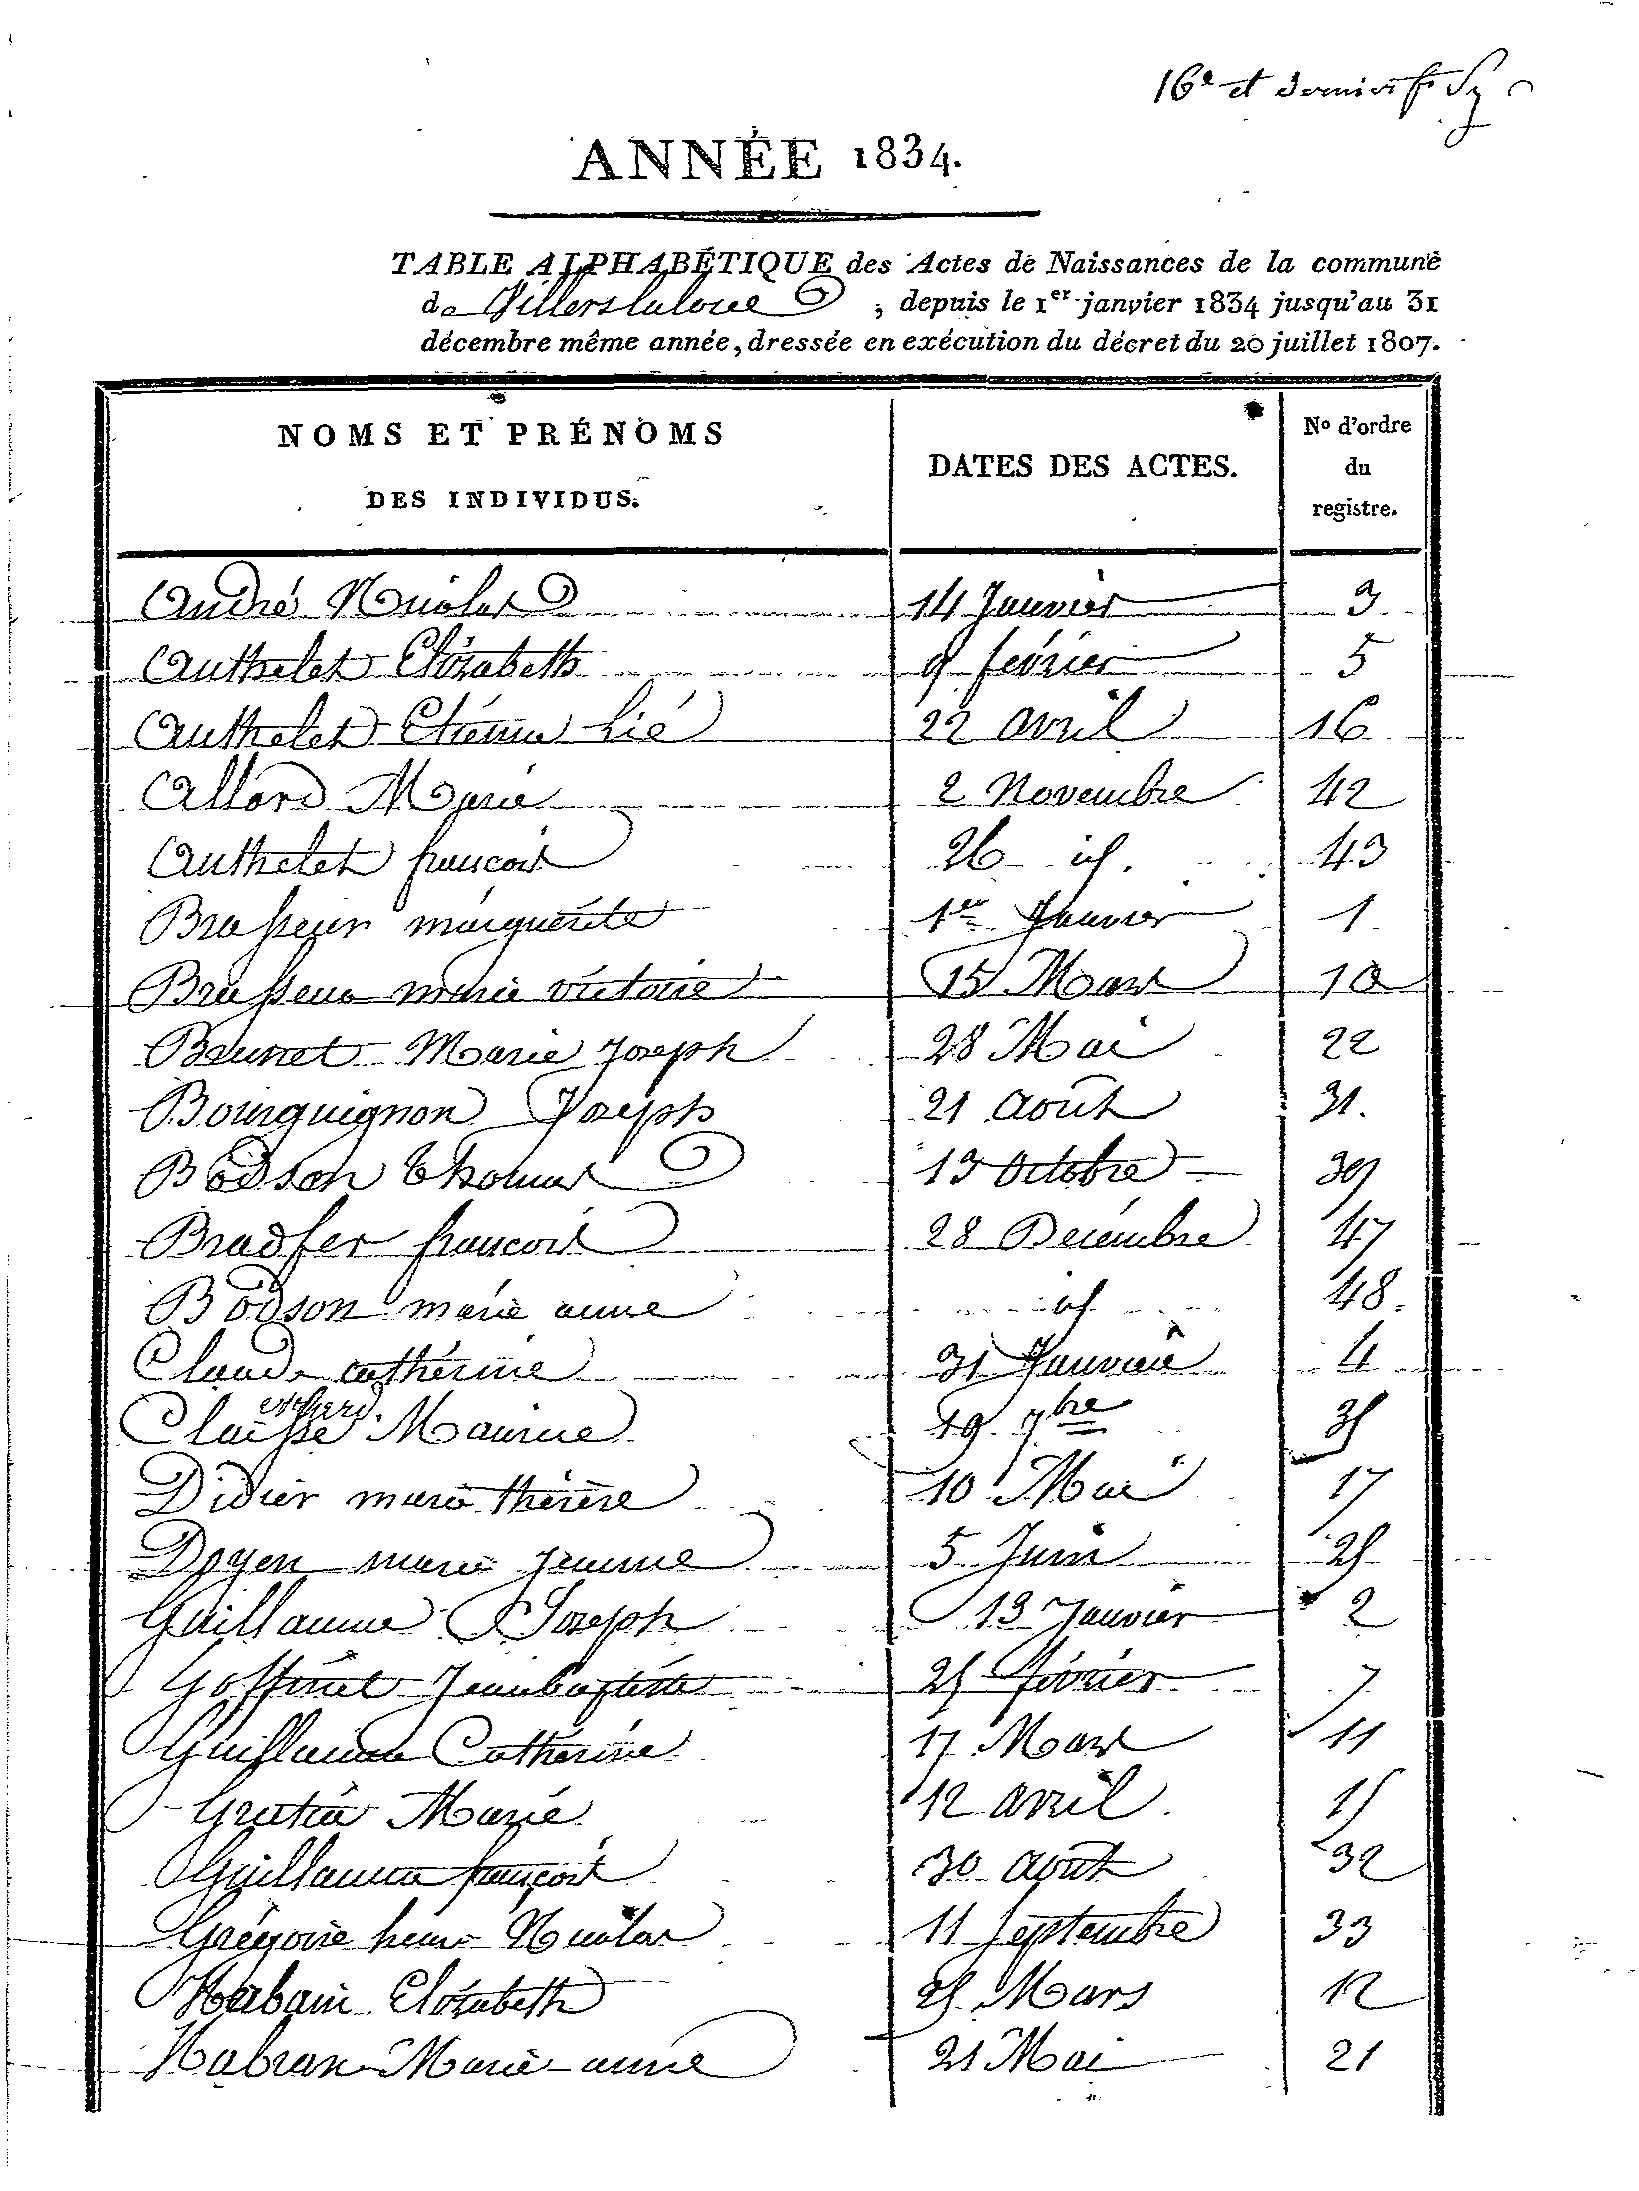 16e et dernier f.
ANNÉE 1834.
TABLE ALPHABÉTIQUE des Actes de Naissances de la commune
de Villerslaloue ; depuis le 1er janvier 1834 jusqu'au 31
décembre même année, dressée en exécution du décret du 20 juillet 1807.
NOMS ET PRÉNOMS DES INDIVIDUS. DATES DES ACTES. No d'ordre du registre.
André Nicolas 14 Janvier 3
Authelet Elizabeth 9 février 5
Authelet Etienne Lié 22 avril 16
Allard Marie 2 Novembre 42
Authelet françois 26 id. 43
Brasseur marguerite 1er Janvier 1
Brasseur marie victoire 15 Mars 10
Brunet Marie Joseph 28 Mai 22
Bourguignon Joseph 21 août 31.
Bodson thomas 13 Octobre 39
Bradfer françois 28 Decembre 47
Bodson marie anne id. 48.
Claude catherine 31 Janvier 4
Claisse Maurice 19 7bre 35
Didier marie thérèse 10 Mai 17
Doyen marie jeanne 5 Juin 25
Guillaume Joseph 13 Janvier 2
Goffinet Jeanbaptiste 25 février 7
Guillaume Catherine 17 Mars 11
Gratia Marie 12 avril 15
Guillaume françois 30 août 32
Grégoire henri Nicolas 11 septembre 33
Habain Elizabeth 25 Mars 12
Habran Marie-anne 21 Mai 21